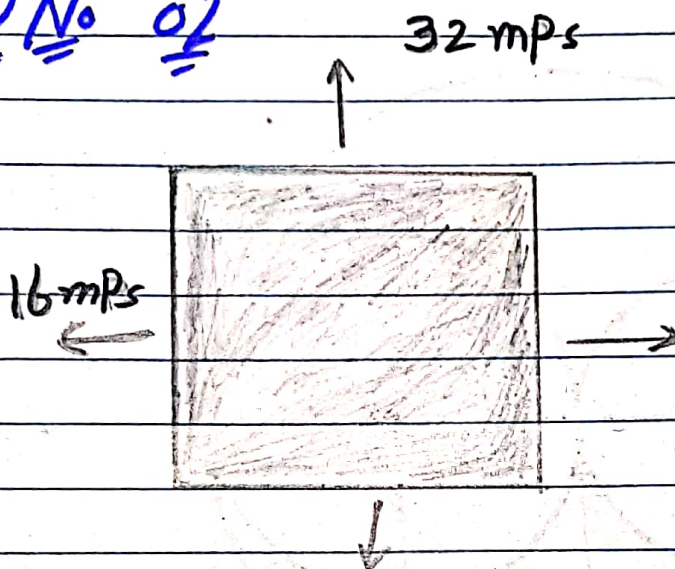 No 02
32 mps
16 mps